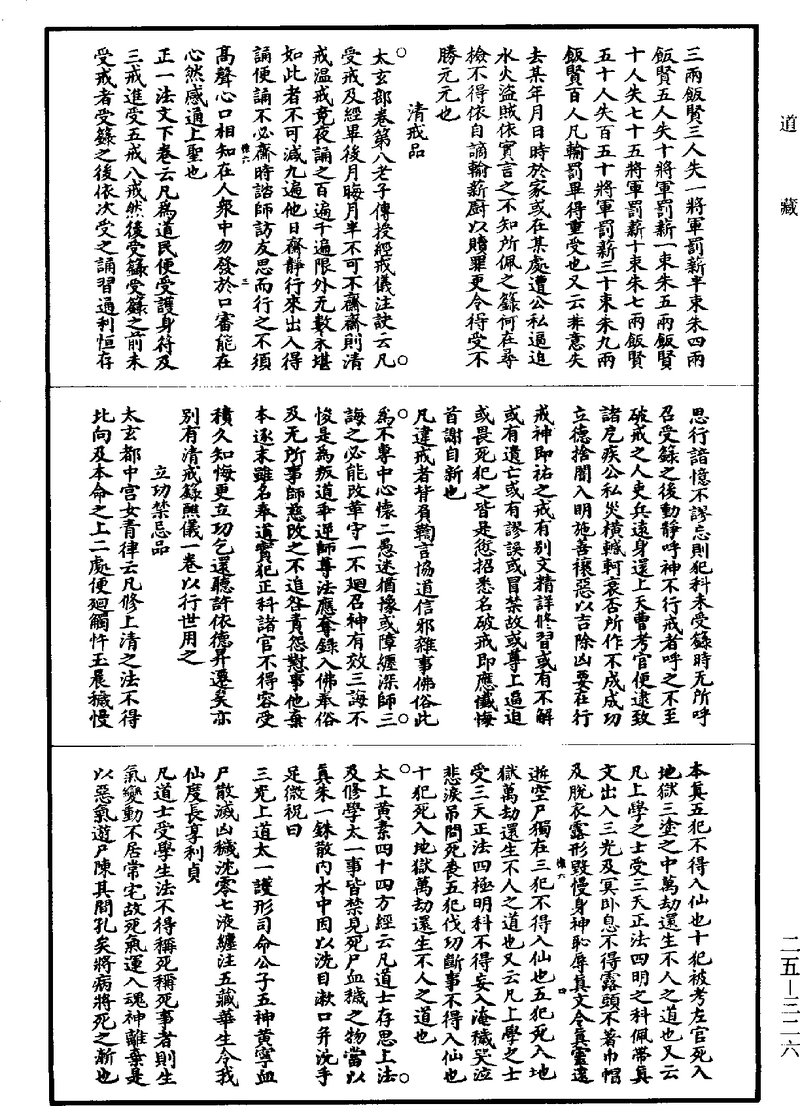 道藏
三兩飯賢三人失一將軍罰薪半束朱四兩
飯賢五人失十將軍罰薪一束朱五兩飯賢
十人失七十五將軍罰薪十束朱七兩飯賢
五十人失百五十將軍罰薪三十束朱九兩
飯賢百人凡輸罰畢得重受也又云非意失
去某年月日時於家或在某處遭公私逼迫
水火盜賊依實言之不知所佩之籙何在尋
檢不得依自謫輸薪廚以贖罪更令得受不
勝元元也
清戒品
太玄都卷第八老子傳授經戒儀注訣云凡
受戒及經畢後月晦月半不可不齋齋則清
戒温戒竟夜誦之百遍千遍限外无數未堪
如此者不可減九遍他日齋靜行來出入得
誦便誦不必齋時諮師訪友思而行之不須
高聲心口相知在人衆中勿發於口審能在
心然感通上聖也
正一法文下卷云凡為道民便受護身符及
三戒進受五戒八戒然後受籙受籙之前未
受戒者受籙之後依次受之誦習通利恒存
思行諳憶不謬忘則犯科未受籙時无所呼
召受籙之後動靜呼神不行戒者呼之不至
破戒之人吏兵遠身還上天曹考官便逮致
諸厄疾公私災橫轗軻衰否所作不成成功
立德捨闇入明施善禳惡以吉除凶要在行
戒神即祐之戒有別文精詳修習或有不解
或有遺亡或有謬誤或冒禁故或尊上逼迫
或畏死犯之皆是愆招悉名破戒即應懺悔
首謝自新也
凡違戒者背負鞫言協道信邪雜事佛俗此
為不專中心懷二愚迷猶豫或障纏深師三
誨之必能改革守一不廻召神有效三誨不
悛是為叛道乖逆師尊法應奪籙入佛奉俗
及无所事師慈改之不追咎責怨懟事他棄
本逐末雖名奉道實犯正科諸官不得容受
積久知悔更立功乞還聽許依德昇遷矣亦
別有清戒籙醮儀一卷以行世用之
立功禁忌品
太玄都中宫女青律云凡修上清之法不得
北向及本命之上二處便廻觸忤玉晨穢慢
本真五犯不得入仙也十犯被考左官死入
地獄三塗之中萬劫還生不人之道也又云
凡上學之士受三天正法四明之科佩帶真
文出入三光及冥卧息不得露頭不著巾帽
及脫衣露形毀慢身神恥辱真文令真靈遠
逝空尸獨在三犯不得入仙也五犯死入地
獄萬劫還生不人之道也又云凡上學之士
受三天正法四極明科不得妄入淹穢哭泣
悲淚弔問死喪五犯伐功斷事不得入仙也
十犯死入地獄萬劫還生不人之道也
太上黃素四十四方經云凡道士存思上法
及修學太一事皆禁見死尸血穢之物當以
真朱一銖散内水中因以洗目漱口并洗手
足微祝曰
三光上道太一護形司命公子五神黃寧血
尸散滅凶穢沈零七液纏注五藏華生令我
仙度長享利貞
凡道士受學生法不得稱死稱死事者則生
氣變動不居常宅故死氣運入魂神離棄是
以惡氣遊尸陳其間孔矣將病將死之漸也
二五—三二六